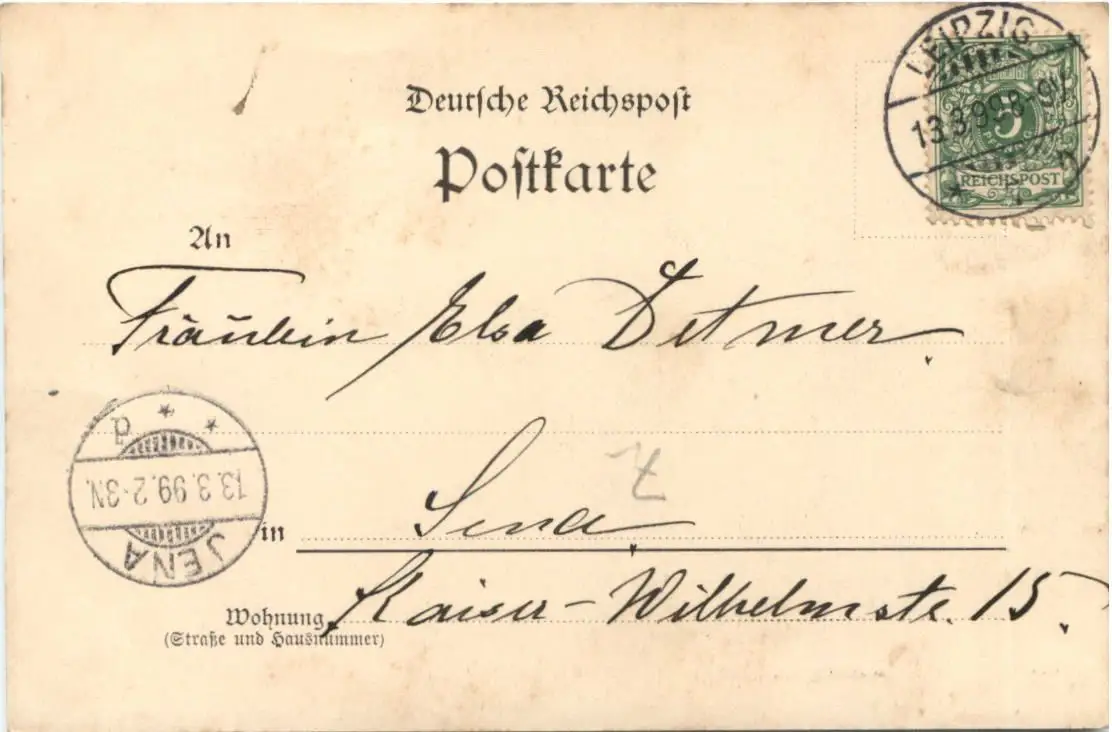 LEIPZIG
13.3.99 8-9V.
5
PFENNIG
REICHSPOST
Deutsche Reichspost
Postkarte
An
Fräulein Elsa Detmer.
* * d
13.3.99.2-3N.
JENA
in Jena
Wohnung Kaiser-Wilhelmstr. 15.
(Straße und Hausnummer)